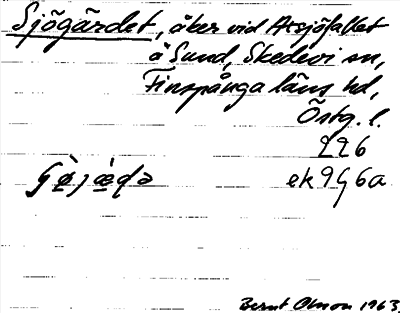 Sjögärdet, åker vid Arsjöfallet
å Sund, Skedevi sn,
Finspånga läns hd,
Östg. l.
226
ek 9G6a
Bernt Olsson 1963.